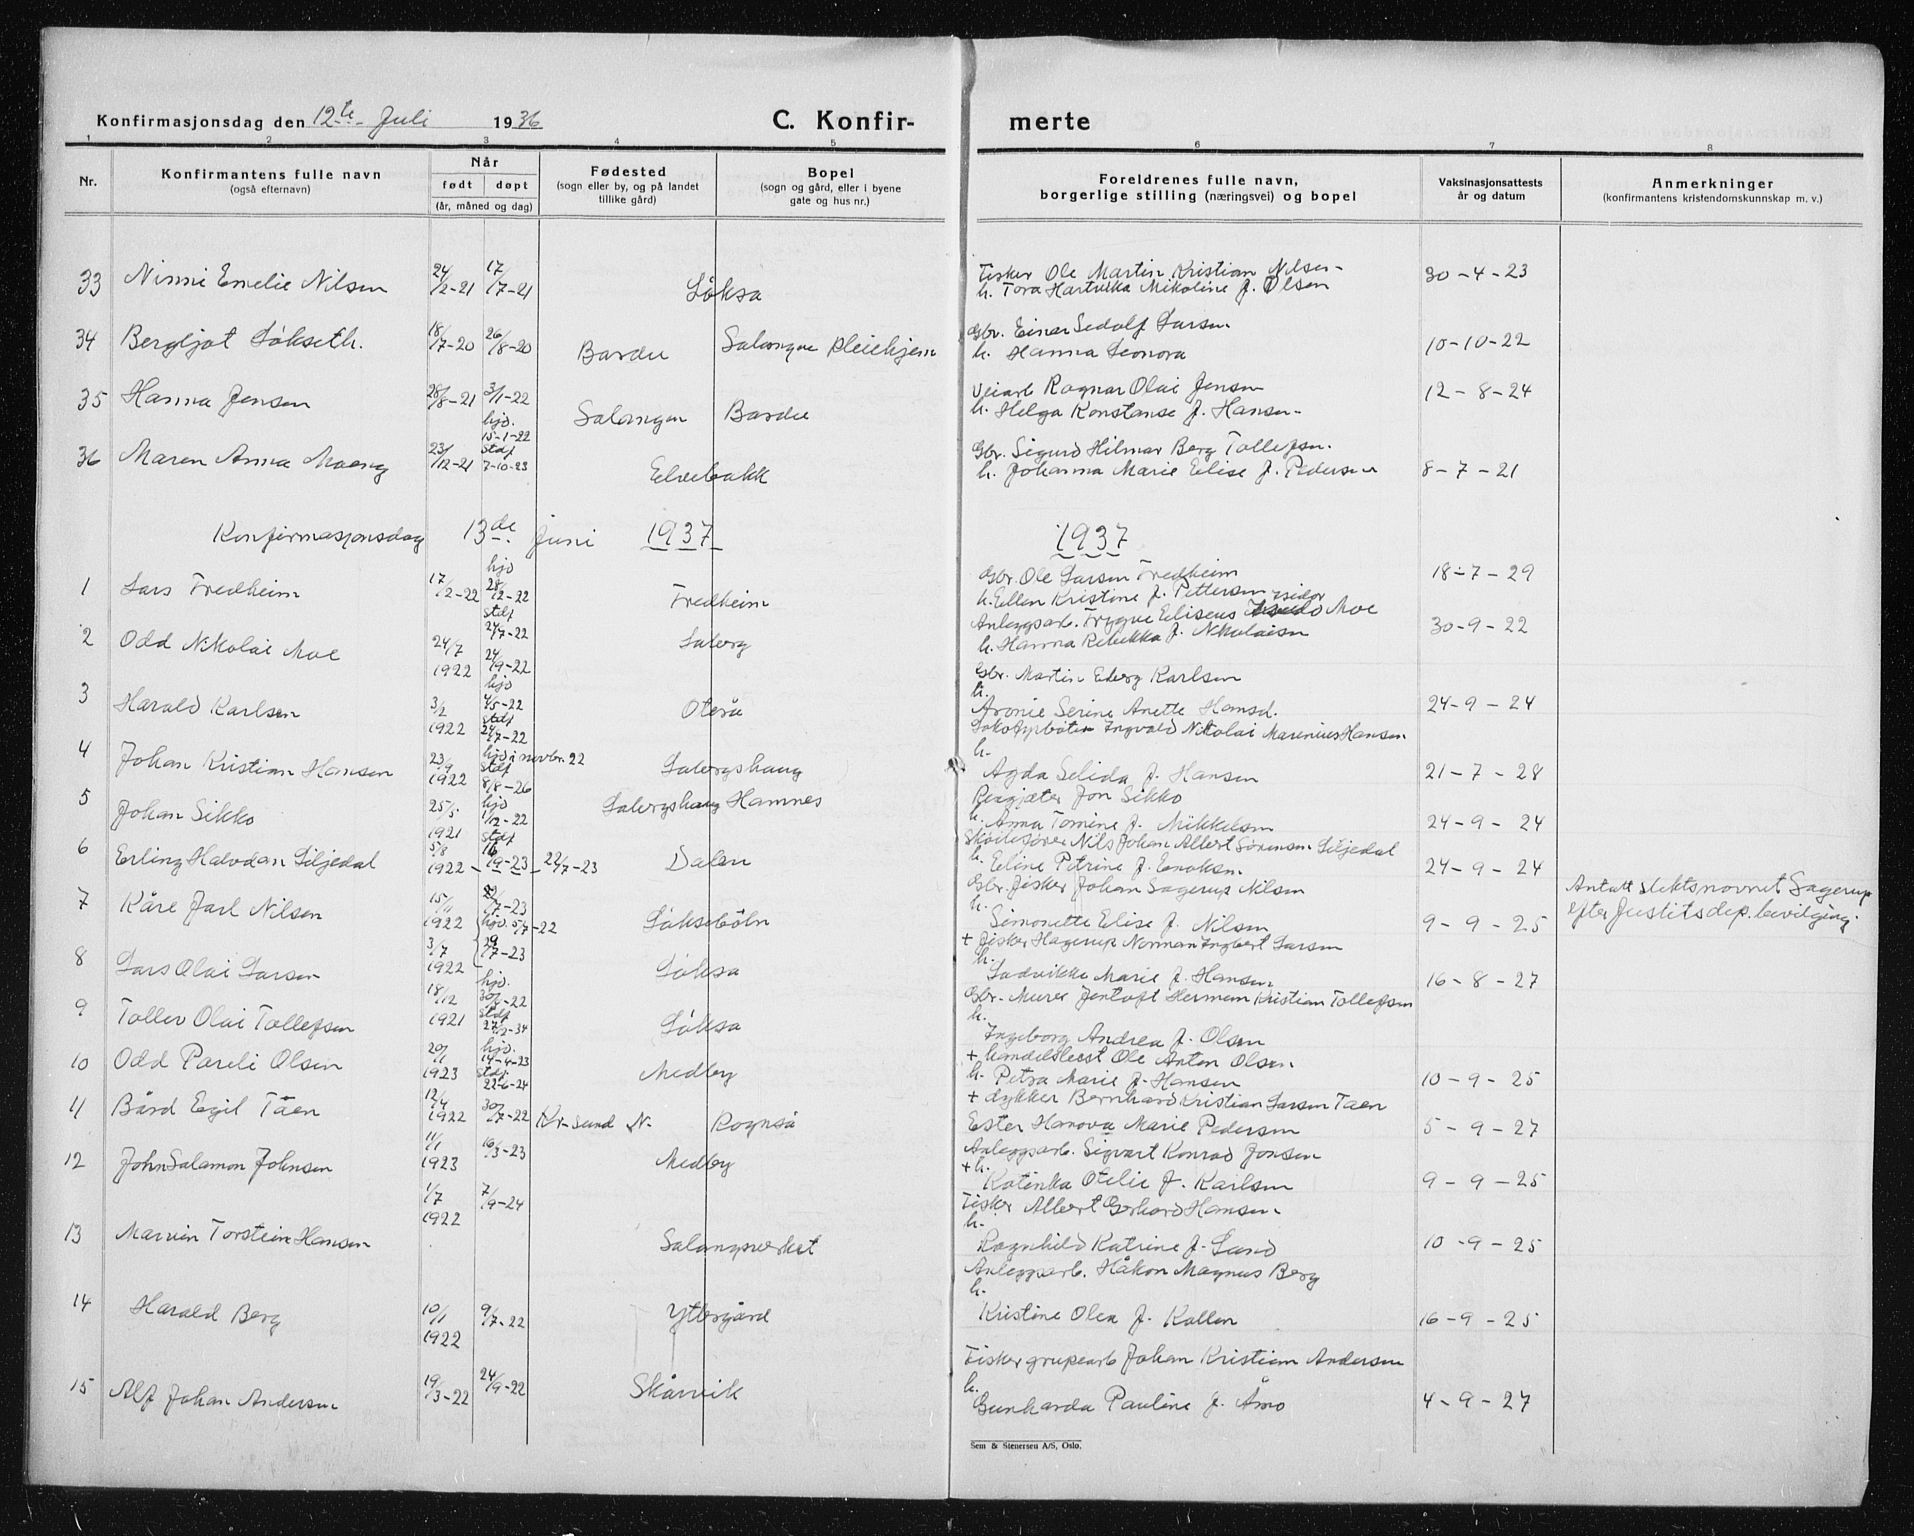 Konfirmasjonsdag den 12te Juli 1936 C. Konfir- merte
1 2 3 4 5 6 7 8
Nr. Konfirmantens fulle navn (også efternavn) Når født døpt (år, måned og dag) Fødested (sogn eller by, og på landet tillike gård) Bopel (sogn og gård, eller i byene gate og hus nr.) Foreldrenes fulle navn, borgerlige stilling (næringsvei) og bopel Vaksinasjonsattests år og datum Anmerkninger (konfirmantens kristendomskunnskap m. v.)
33 Ninni Emelie Nilsen 24/2-21 17/7-21 Løksa Fisker Ole Martin Kristian Nilsen 30-4-23
h. Tora Hartvikka Mikoline f. Olsen
34 Bergljot Løkseth. 18/7-20 26/8-20 Bardu Salangen pleiehjem Gbr. Einar Sedolf Larsen 10-10-22
h. Hanna Leonora
35 Hanna Jensen 28/8-21 3/1-22 Salangen Bardu Veiarb Ragnar Olai Jensen 12-8-24
h. Helga Konstanse f. Hansen
36 Maren Anna Moeng 23/12-21 hjd. 15-1-22 stdf 7-10-23 Elvebakk Gbr. Sigurd Hilmar Berg Tollefsen. 8-7-21
h. Johanna Marie Elise f. Pedersen
Konfirmasjonsdag 13de Juni 1937 1937
1 Lars Fredheim 17/2-22 hjd 28/2-22 stdf 24/7-22 Fredheim Gbr. Ole Larsen Fredheim 18-7-29
h. Ellen Kristine f. Pettersen
2 Odd Nikolai Moe 24/7 1922 24/9-22 Laberg Anleggsarb. Trygve Eliseus Isidor Moe 30-9-22
h. Hanna Rebekka f. Nikolaisen
3 Harald Karlsen 3/2 1922 hjd 4/5-22 stdf 24/7-22 Oterå Gbr. Martin Eberg Karlsen 24-9-24
h. Aronie Serine Anette Hansd.
4 Johan Kristian Hansen 23/9 1922 hjd i novbr. 22 stdf 8/8-26 Labergshaug Ingvald Nikolai Marenius Hansen 21-7-28
h. Agda Selida f. Hansen
5 Johan Sikko 25/5 1921 hjd 1/12-22 stdf Labergshaug Hamnes Rengjæter Jon Sikko 24-9-24
h. Anna Tomine f. Mikkelsen
6 Erling Halvdan Liljedal 5/8 1922 22/7-23 Dalen Skøitefører Nils Johan Albert Sørensen Liljedal 24-9-24
h. Eline Petrine f. Enoksen
7 Kåre Jarl Nilsen 15/11 1922 /7-23 Løksebotn Gbr. fisker Johan Sagerup Nilsen 9-9-25 Antatt slektsnavnet Sagerup
h. Simonette Elise f. Nilsen efter Justitsdep. bevilging.
8 Lars Olai Larsen 3/7 1922 hjd. 5/7-22 29/7-23 Løksa + fisker Hagerup Norman Ingbert Larsen 16-8-27
h. Ludvikke Marie f. Hansen
9 Tollev Olai Tollefsen 18/12 1921 hjd. stdf Løksa Gbr. Murer Jentoft Hermann Kristian Tollefsen
h. Ingeborg Andrea f. Olsen
10 Odd Pareli Olsen 20/1 1923 hjd. 14-4-23 stdf 22-6-24 Medby + handelsbest Ole Anton Olsen 10-9-25
h. Petra Marie f. Hansen
11 Bård Egil Tåen 12/4 1922 30/7-22 Kr-sund N. Rognså + dykker Bernhard Kristian Larsen Taen 5-9-27
Ester Hanova Marie Pedersen
12 John Salamon Johnsen 11/1 1923 16/3-23 Medby Anleggsarb. Sigvart Konrad Jonsen 9-9-25
+ h. Katinka Otelie f. Karlsen
13 Marvin Torstein Hansen 1/7 1922 7/9-24 Salangsverket Fisker Albert Gerhard Hansen 10-9-25
h. Ragnhild Katrine f. Lund
14 Harald Berg 10/1 1922 9/7-22 Yttergård Anleggsarb. Håkon Magnus Berg 16-9-25
h. Kristine Olea f. Kollen
15 Alf Johan Andersen 19/3-22 24/9-22 Skårvik Fisker grupearb Johan Kristian Andersen 4-9-27
h. Gunharda Pauline f. Åmo
Sem & Stenersen A/S, Oslo.